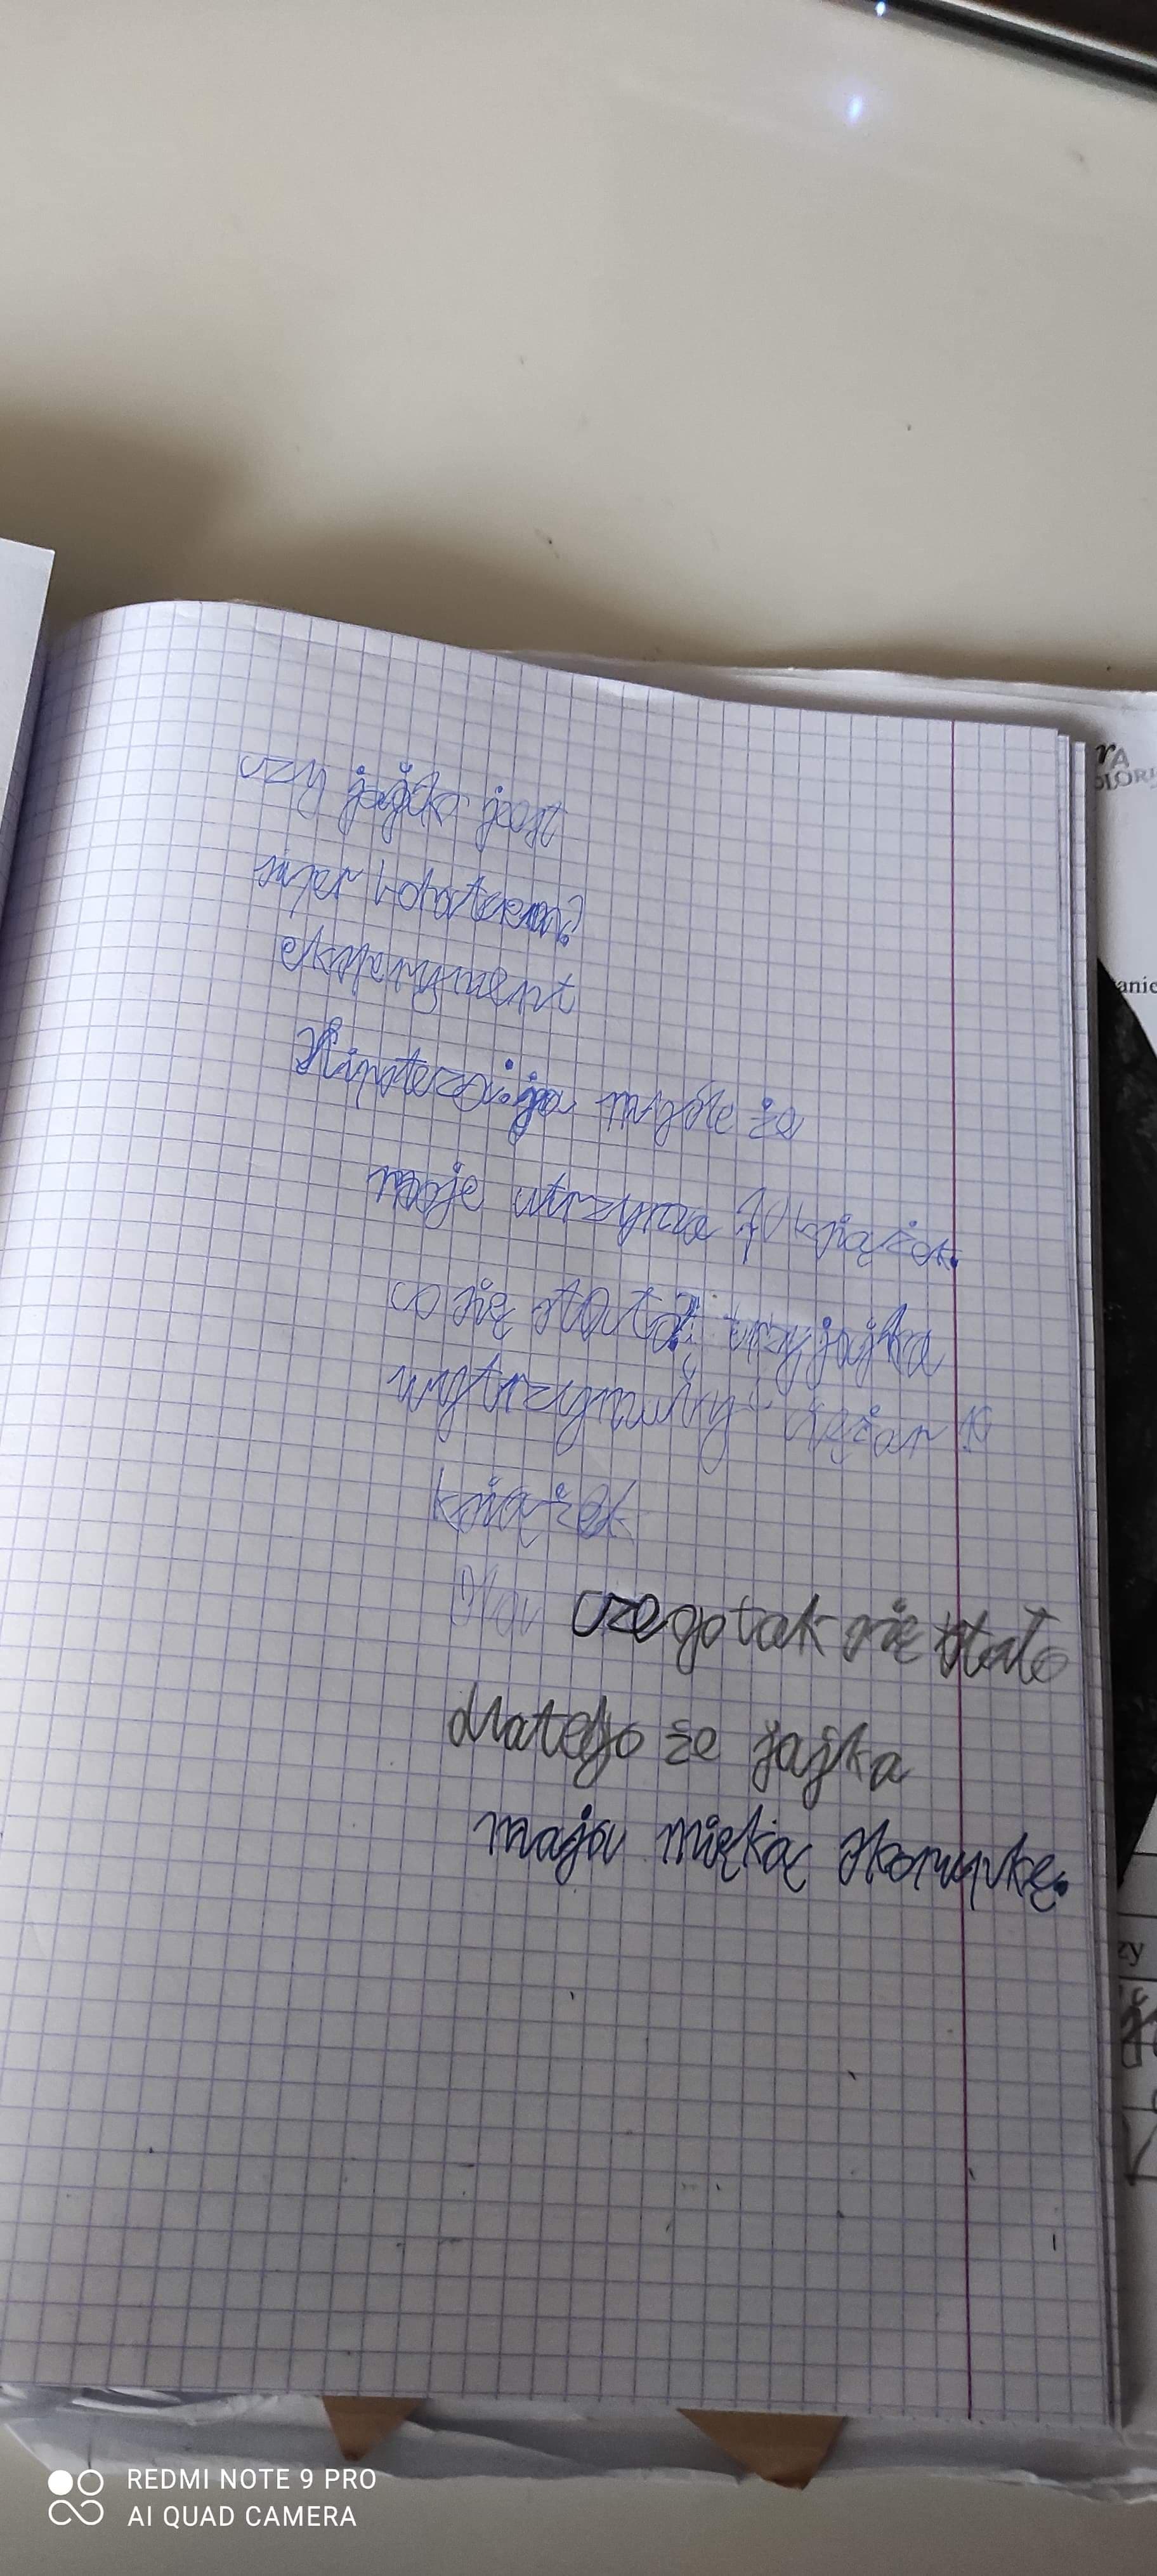 czy jajko jest
super bohaterem?
eksperyment
Hipoteza: ja myśle że
moje utrzyma 10 książek.
co się stało? trzy jajka
wytrzymały ciężar 10
książek
czego tak się stało
dlatego że jajka
mają mięką skorupkę.
rA
OLORI
anie
zy
REDMI NOTE 9 PRO
AI QUAD CAMERA